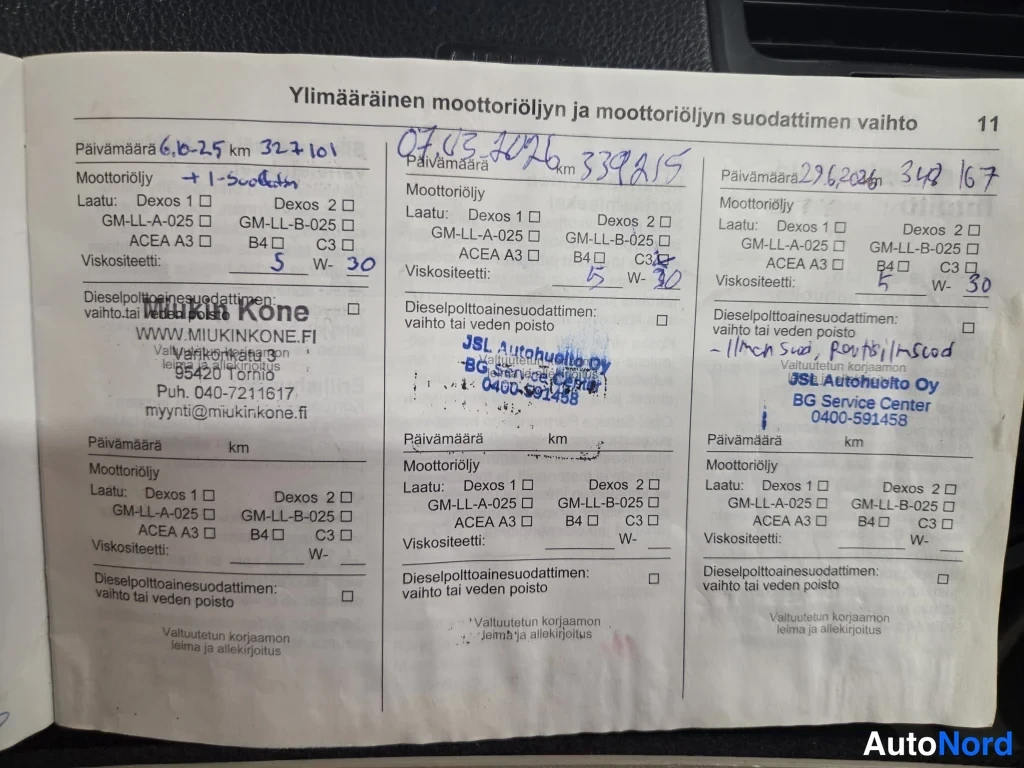 Ylimääräinen moottoriöljyn ja moottoriöljyn suodattimen vaihto 11
Päivämäärä 6.10-25 km 327101
Moottoriöljy
Laatu: Dexos 1 Dexos 2
GM-LL-A-025 GM-LL-B-025
ACEA A3 B4 C3
Viskositeetti: 5 W- 30
Dieselpolttoainesuodattimen:
vaihto tai veden poisto
Miukin Kone
WWW.MIUKINKONE.FI
Valtuutetun korjaamon
leima ja allekirjoitus
Varikonkatu 3
95420 Tornio
Puh. 040-7211617
myynti@miukinkone.fi
07.03-2026
Päivämäärä km 339215
Moottoriöljy
Laatu: Dexos 1 Dexos 2
GM-LL-A-025 GM-LL-B-025
ACEA A3 B4 C3
Viskositeetti: 5 W- 30
Dieselpolttoainesuodattimen:
vaihto tai veden poisto
JSL Autohuolto Oy
BG Service Center
0400-591458
Päivämäärä 29.6.2026 348 167
Moottoriöljy
Laatu: Dexos 1 Dexos 2
GM-LL-A-025 GM-LL-B-025
ACEA A3 B4 C3
Viskositeetti: 5 W- 30
Dieselpolttoainesuodattimen:
vaihto tai veden poisto
Valtuutetun korjaamon
JSL Autohuolto Oy
BG Service Center
0400-591458
Päivämäärä km
Moottoriöljy
Laatu: Dexos 1 Dexos 2
GM-LL-A-025 GM-LL-B-025
ACEA A3 B4 C3
Viskositeetti: W-
Dieselpolttoainesuodattimen:
vaihto tai veden poisto
Valtuutetun korjaamon
leima ja allekirjoitus
Päivämäärä km
Moottoriöljy
Laatu: Dexos 1 Dexos 2
GM-LL-A-025 GM-LL-B-025
ACEA A3 B4 C3
Viskositeetti: W-
Dieselpolttoainesuodattimen:
vaihto tai veden poisto
Valtuutetun korjaamon
leima ja allekirjoitus
Päivämäärä km
Moottoriöljy
Laatu: Dexos 1 Dexos 2
GM-LL-A-025 GM-LL-B-025
ACEA A3 B4 C3
Viskositeetti: W-
Dieselpolttoainesuodattimen:
vaihto tai veden poisto
Valtuutetun korjaamon
leima ja allekirjoitus
AutoNord